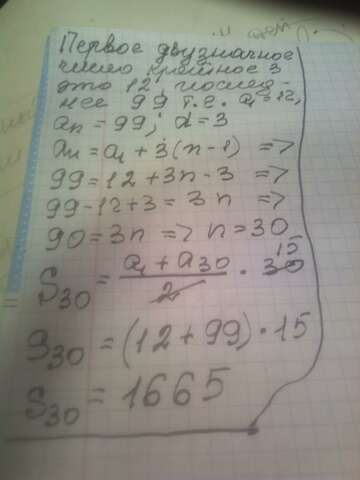 Первое двузначное
число кратное 3
это 12, послед-
нее 99 т.е. a₁=12,
aₙ = 99; d = 3
aₙ = a₁ + 3(n-1) =>
99 = 12 + 3n - 3 =>
99 - 12 + 3 = 3n =>
90 = 3n => n = 30
S₃₀ = (a₁ + a₃₀)/2 · 30 15
S₃₀ = (12 + 99) · 15
S₃₀ = 1665